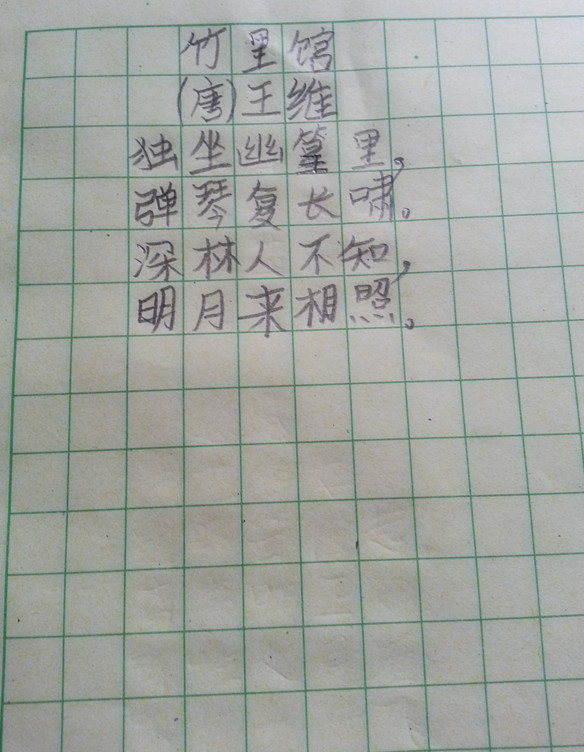 竹里馆
(唐)王维
独坐幽篁里,
弹琴复长啸。
深林人不知,
明月来相照。